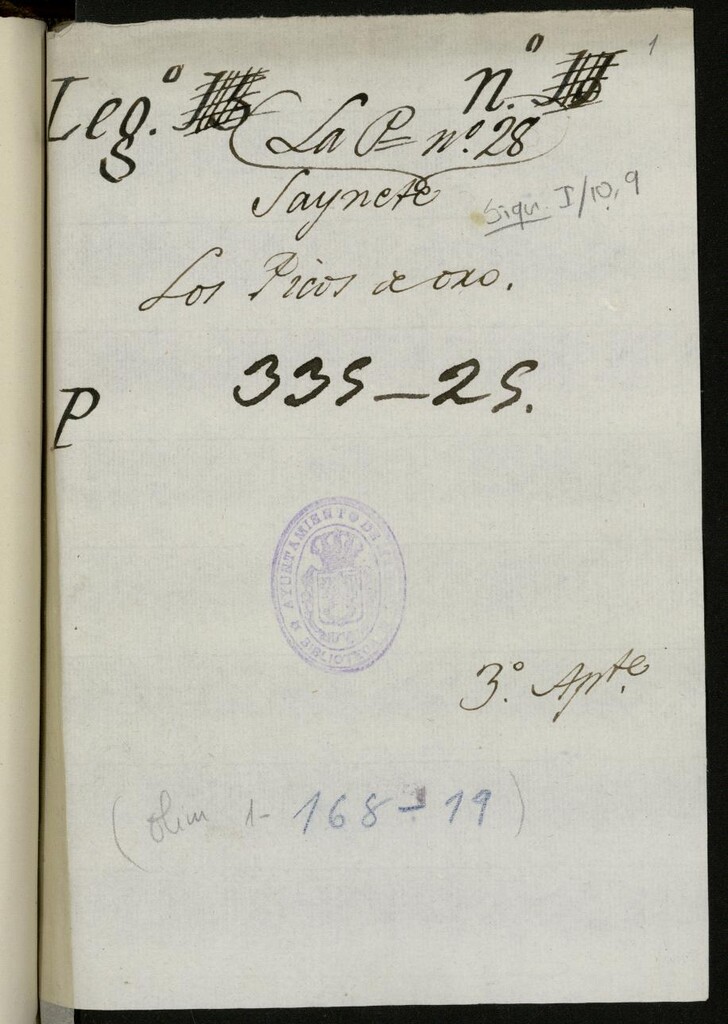 1
Leg.º n.º
La P.= nº. 28
Saynete
Sign. I/10, 9
Los Picos de oro.
335-25.
P
AYUNTAMIENTO DE
BIBLIOTECA
3.º Apte.
(olim 1- 168-19)